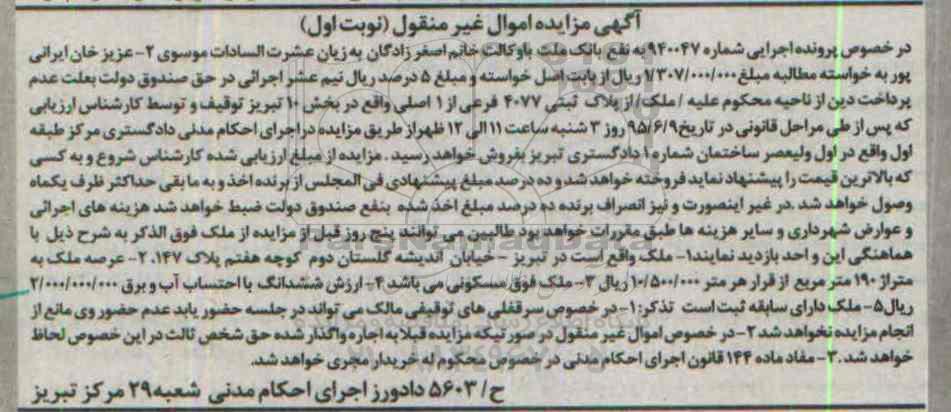 آگهی مزایده اموال غیر منقول (نوبت اول)
در خصوص پرونده اجرایی شماره ۹۴۰۰۴۷ به نفع بانک ملت باوکالت خانم اصغر زادگان به زیان عشرت السادات موسوی ۲- عزیز خان ایرانی
پور به خواسته مطالبه مبلغ ۱/۳۰۷/۰۰۰/۰۰۰ ریال از بابت اصل خواسته و مبلغ ۵ درصد ریال نیم عشر اجرائی در حق صندوق دولت بعلت عدم
پرداخت دین از ناحیه محکوم علیه / ملک/ از پلاک ثبتی ۴۰۷۷ فرعی از ۱ اصلی واقع در بخش ۱۰ تبریز توقیف و توسط کارشناس ارزیابی
که پس از طی مراحل قانونی در تاریخ ۹۵/۶/۹ روز ۳ شنبه ساعت ۱۱ الی ۱۲ ظهر از طریق مزایده در اجرای احکام مدنی دادگستری مرکز طبقه
اول واقع در اول ولیعصر ساختمان شماره ۱ دادگستری تبریز بفروش خواهد رسید . مزایده از مبلغ ارزیابی شده کارشناس شروع و به کسی
که بالاترین قیمت را پیشنهاد نماید فروخته خواهد شد و ده درصد مبلغ پیشنهادی فی المجلس از برنده اخذ و به مابقی حداکثر ظرف یکماه
وصول خواهد شد .در غیر اینصورت و نیز انصراف برنده ده درصد مبلغ اخذ شده بنفع صندوق دولت ضبط خواهد شد هزینه های اجرائی
و عوارض شهرداری و سایر هزینه ها طبق مقررات خواهد بود طالبین می توانند پنج روز قبل از مزایده از ملک فوق الذکر به شرح ذیل با
هماهنگی این واحد بازدید نمایند۱- ملک واقع است در تبریز - خیابان اندیشه گلستان دوم کوچه هفتم پلاک ۱۴۷. ۲- عرصه ملک به
متراژ ۱۹۰ متر مربع از قرار هر متر ۱۰/۵۰۰/۰۰۰ ریال ۳- ملک فوق مسکونی می باشد ۴- ارزش ششدانگ با احتساب آب و برق ۲/۰۰۰/۰۰۰/۰۰۰
ریال۵- ملک دارای سابقه ثبت است تذکر: ۱- در خصوص سرقفلی های توقیفی مالک می تواند در جلسه حضور یابد عدم حضور وی مانع از
انجام مزایده نخواهد شد ۲- در خصوص اموال غیر منقول در صورتیکه مزایده قبلا به اجاره واگذار شده حق شخص ثالث در این خصوص لحاظ
خواهد شد .۳- مفاد ماده ۱۴۴ قانون اجرای احکام مدنی در خصوص محکوم له خریدار مجری خواهد شد.
ح/ ۵۶۰۳ دادورز اجرای احکام مدنی شعبه ۲۹ مرکز تبریز
ParsNamadData